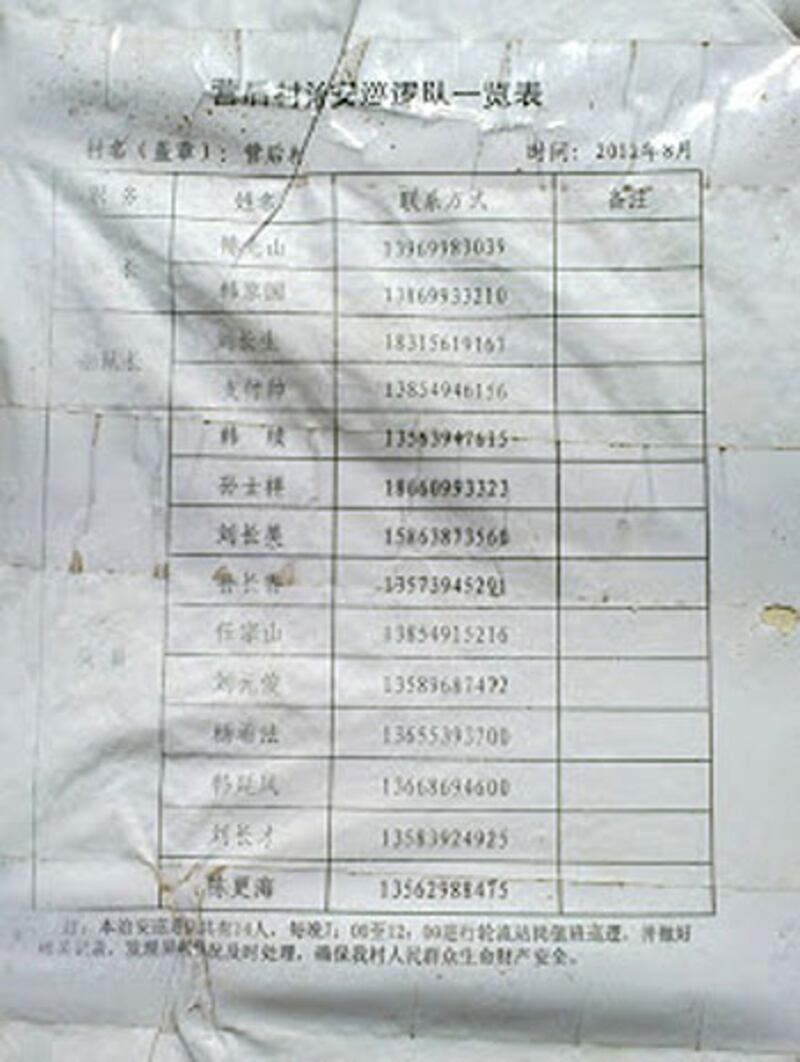 营后村治安巡逻队一览表
村名（盖章）：营后村 时间：2012年8月
职务 姓名 联系方式 备注
长 陈光山 13969983039
韩京国 13869933210
小队长 刘长生 18315619167
支付帅 13854946156
韩 续 13583947615
孙士祥 18660993323
刘长英 15863873560
长 13573945291
任宗山 13854915216
队员 刘元俊 13589687472
杨希法 13655393700
韩延凤 13668694600
刘长才 13583924925
陈更海 13562988475
注：本治安巡逻队共有14人，每晚7：00至12：00进行轮流站岗值班巡逻，并做好
相关记录，发现异常情况及时处理，确保我村人民群众生命财产安全。